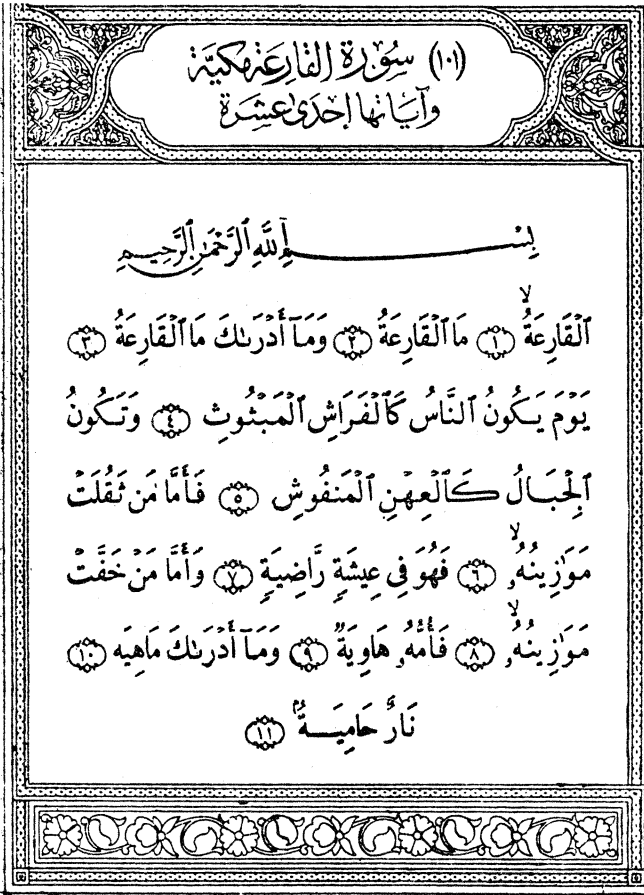 (١٠١) سُورَة القَارِعَة مَكِيَّة
وَآيَاتهَا إحْدَى عَشَرَة
بِسْمِ ٱللَّهِ ٱلرَّحْمَٰنِ ٱلرَّحِيمِ
ٱلْقَارِعَةُ ۙ ﴿١﴾ مَا ٱلْقَارِعَةُ ﴿٢﴾ وَمَآ أَدْرَىٰكَ مَا ٱلْقَارِعَةُ ﴿٣﴾
يَوْمَ يَكُونُ ٱلنَّاسُ كَٱلْفَرَاشِ ٱلْمَبْثُوثِ ﴿٤﴾ وَتَكُونُ
ٱلْجِبَالُ كَٱلْعِهْنِ ٱلْمَنفُوشِ ﴿٥﴾ فَأَمَّا مَن ثَقُلَتْ
مَوَٰزِينُهُۥ ۙ ﴿٦﴾ فَهُوَ فِى عِيشَةٍ رَّاضِيَةٍ ﴿٧﴾ وَأَمَّا مَنْ خَفَّتْ
مَوَٰزِينُهُۥ ۙ ﴿٨﴾ فَأُمُّهُۥ هَاوِيَةٌ ﴿٩﴾ وَمَآ أَدْرَىٰكَ مَاهِيَهْ ﴿١٠﴾
نَارٌ حَامِيَةٌۢ ﴿١١﴾